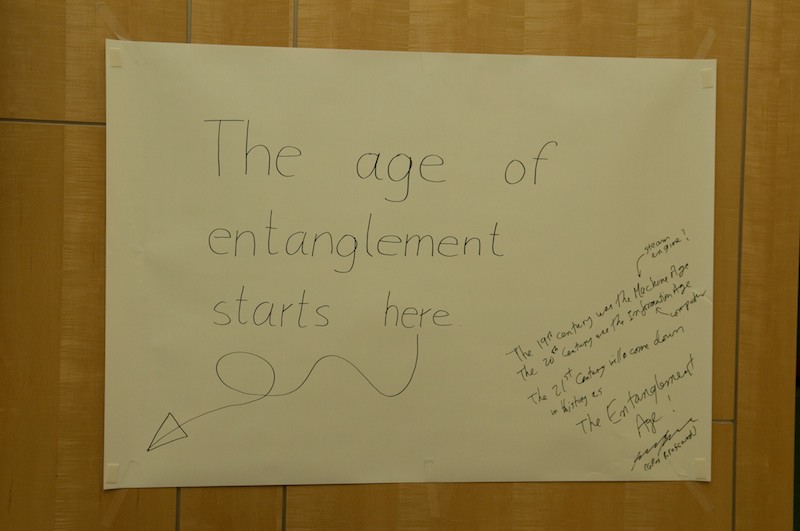 The age of
entanglement
starts here
steam
engine?
The 19th century was the Machine Age
The 20th Century was the Information Age
computer
The 21st Century will come down
in history as
The Entanglement
Age!